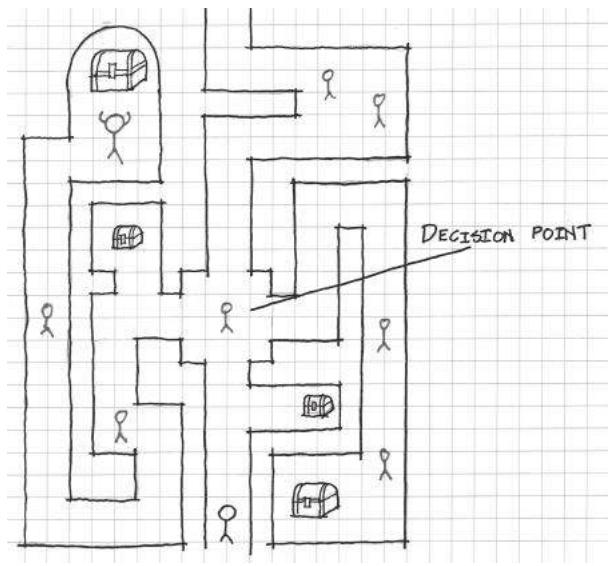 DECISION POINT